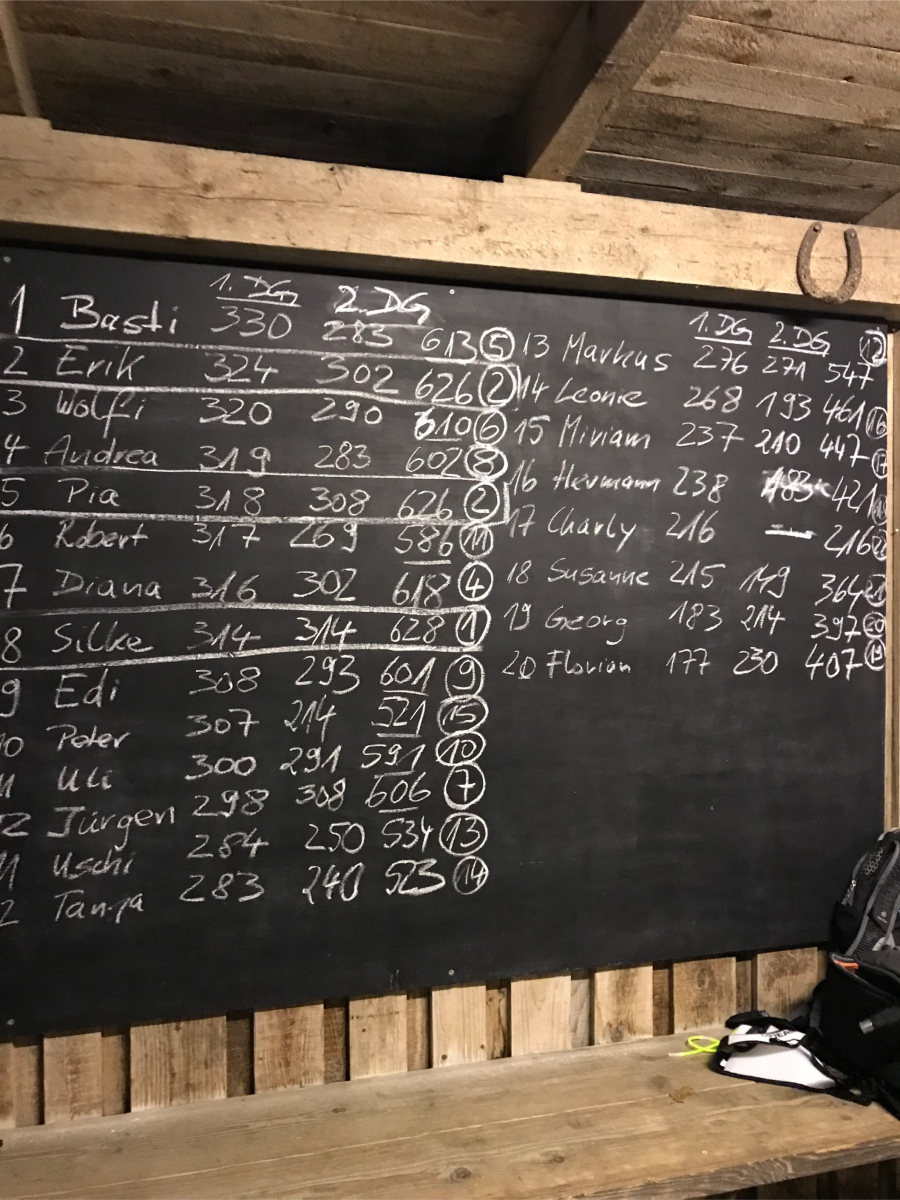 1. DG 2. DG
1 Basti 330 283 613 5
2 Erik 324 302 626 2
3 Wolfi 320 290 610 6
4 Andrea 319 283 602 8
5 Pia 318 308 626 2
6 Robert 317 269 586 11
7 Diana 316 302 618 4
8 Silke 314 314 628 1
9 Edi 308 293 601 9
10 Peter 307 214 521 15
11 Uli 300 291 591 10
12 Jürgen 298 308 606 7
11 Uschi 284 250 534 13
2 Tanja 283 240 523 14
1. DG 2. DG
13 Markus 276 271 547 12
14 Leonie 268 193 461 16
15 Miriam 237 210 447 17
16 Hermann 238 183 421
17 Charly 216 — 216
18 Susanne 215 149 364
19 Georg 183 214 397 20
20 Florian 177 230 407 19